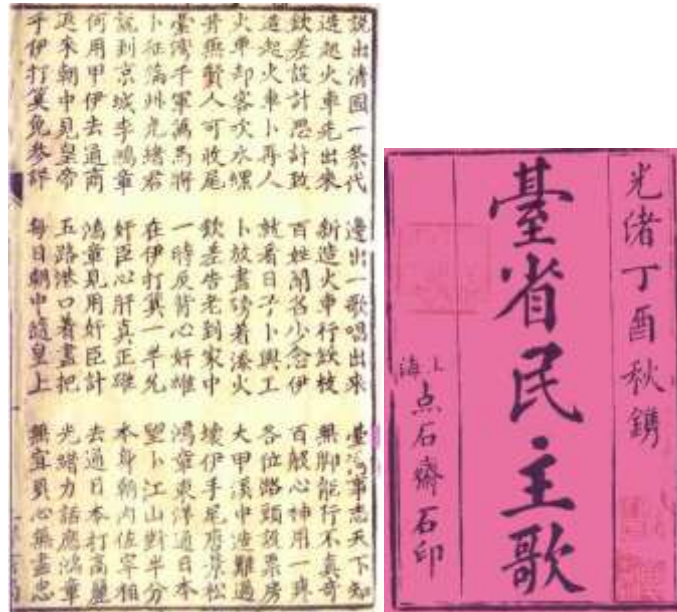 說出清國一祭代 邊出一歌唱出來 臺灣事志天下知
造起火車先出來 新造火車行鉄枝 無脚能行不真奇
欽差設計愚計致 百姓聞名少念伊 百般心神用一
造起火車卜再人 就看日子卜興工 各位路頭設票房
火車却客吹水螺 卜放書磅着湊火 大甲溪中造難過
井無賢人可收尾 欽差告老到家中 壞伊手尾唐景松
臺灣千軍萬馬將 一時反背心奸雄 鴻章東洋通日本
卜征滿州光緒君 在伊打算一半先 望卜江山對半分
說到京城李鴻章 奸臣心肝真正雄 本身朝內佐宰相
何用甲伊去通商 鴻章見用奸臣計 去通日本打高麗
返來朝中見皇帝 五路港口着盡把 光緒力話應鴻章
乎伊打算免參詳 每日朝中隨皇上 無宜貳心無盡忠
光緒丁酉秋鐫
臺省民主歌
上海点石齋石印